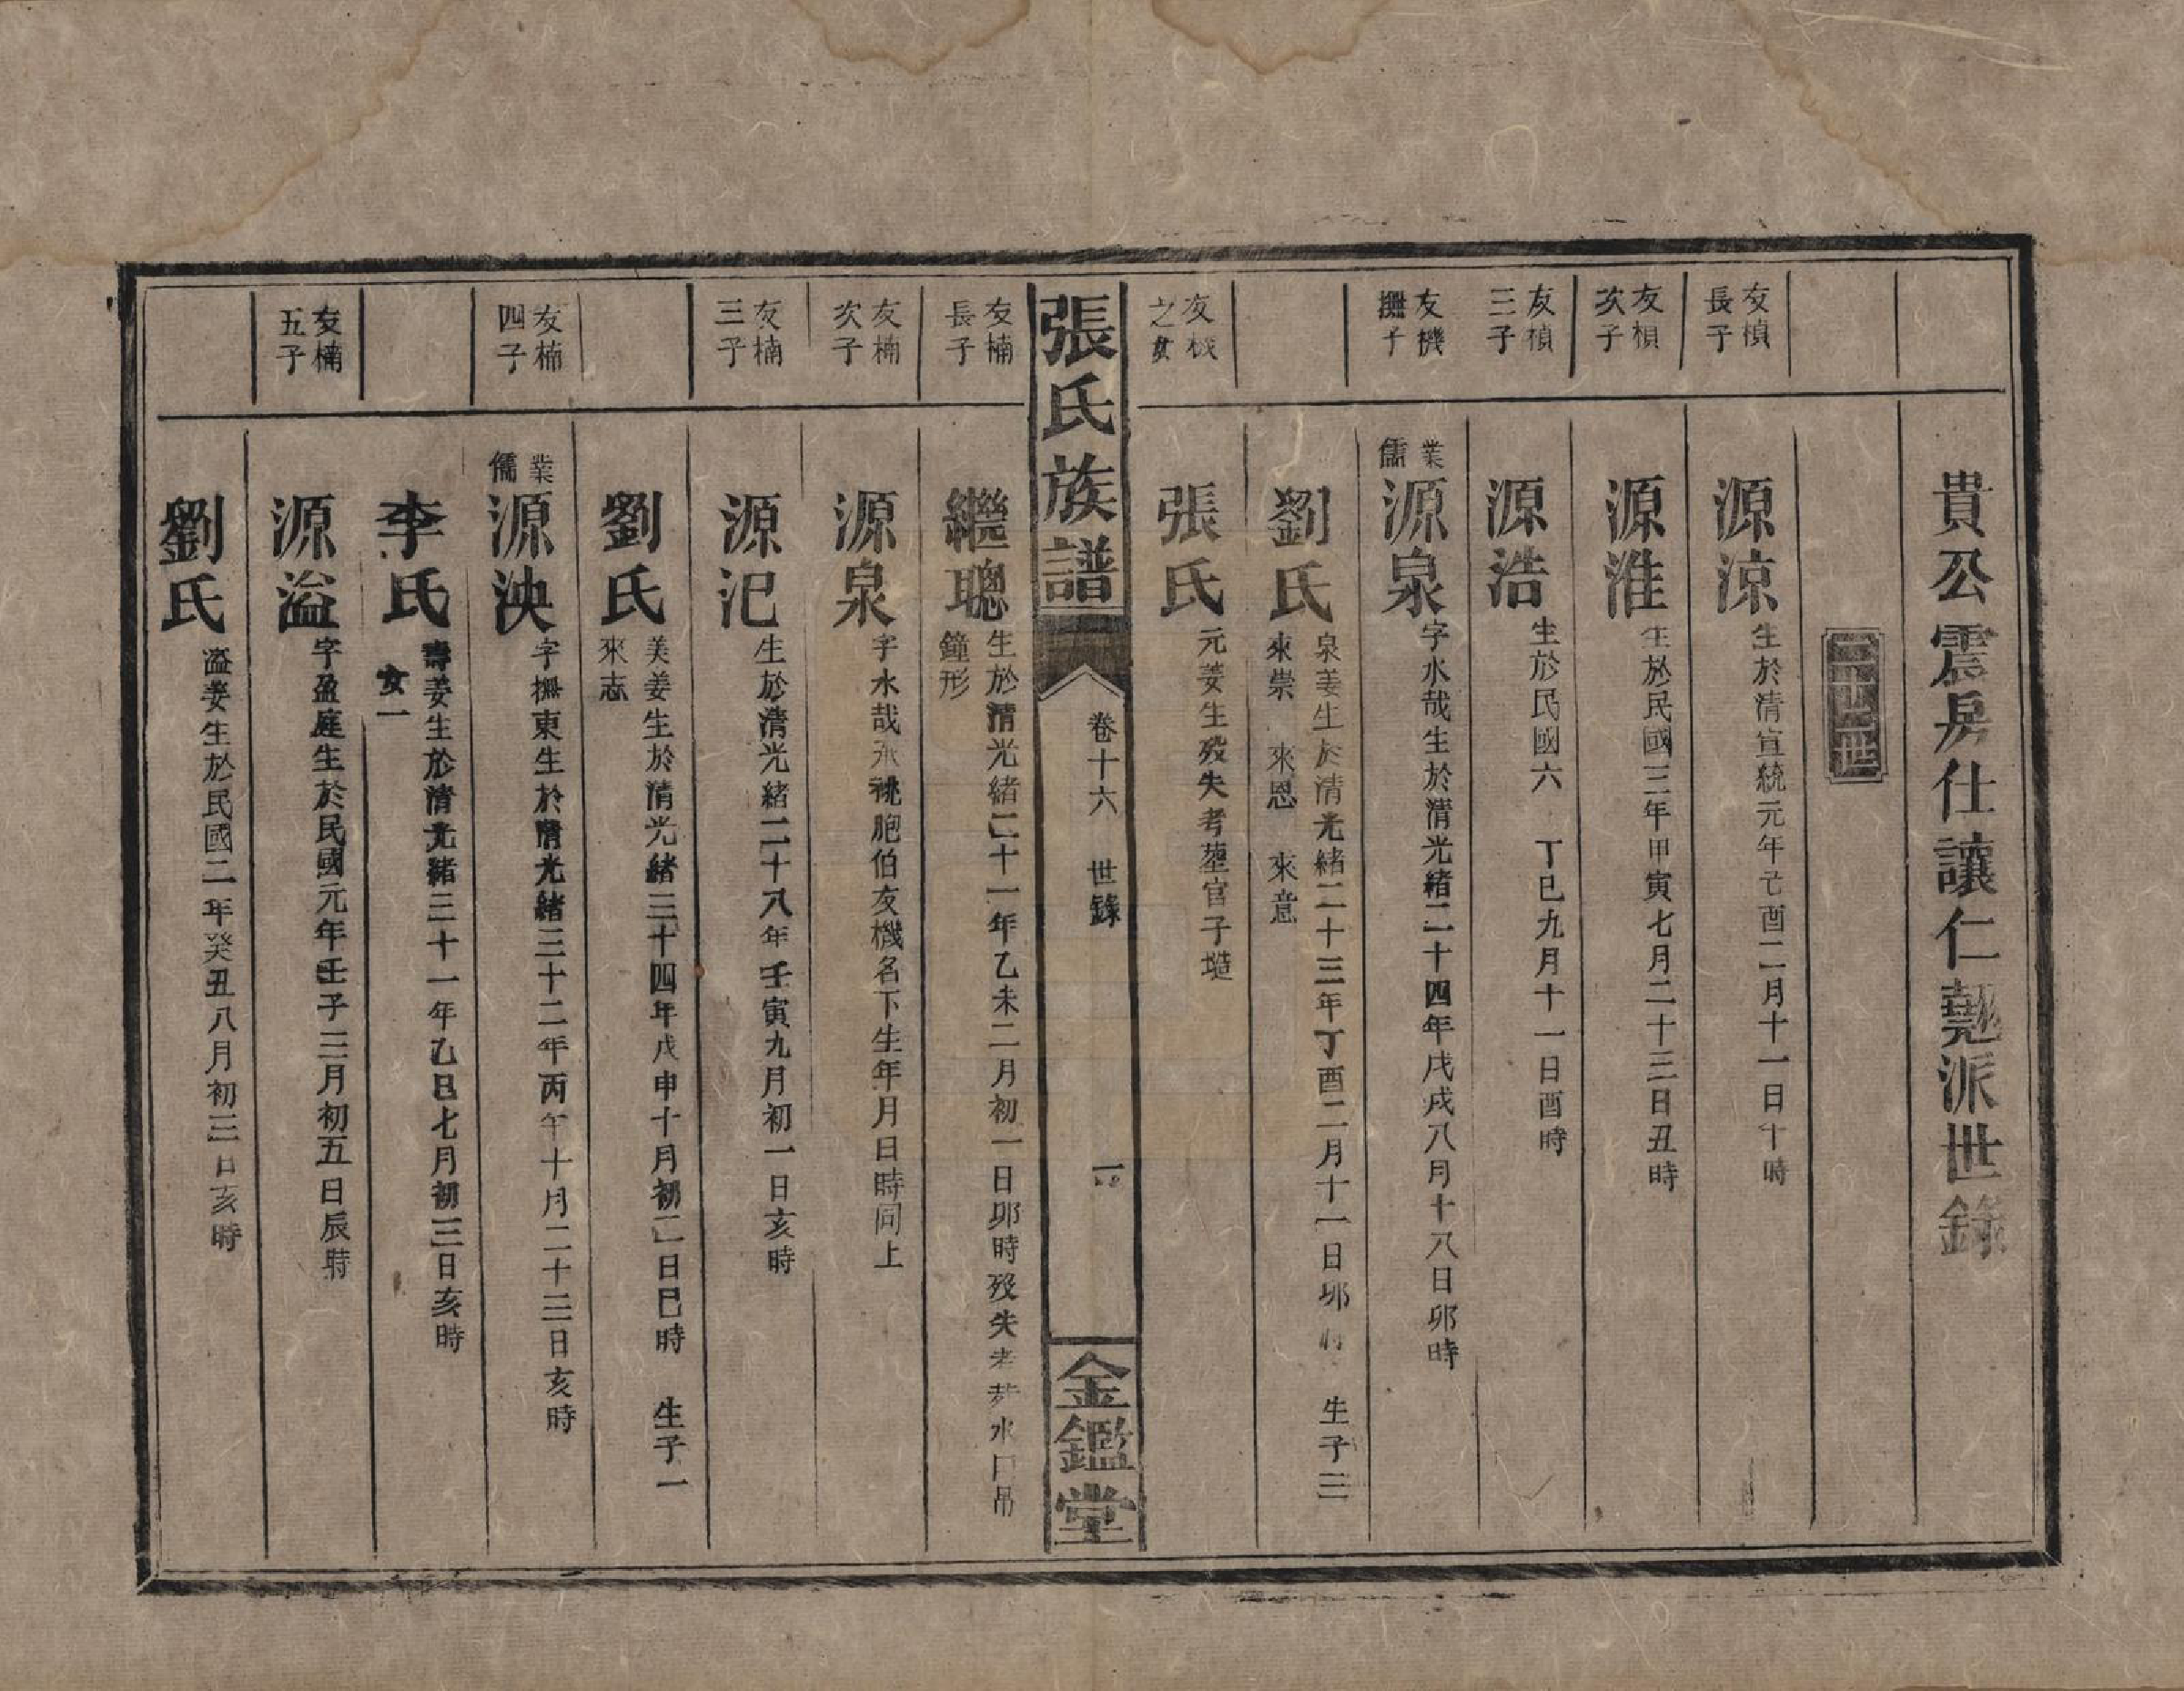 貴公震房仕讓仁藝派世錄
二十世
友楨長子
源涼 生於清宣統元年己酉二月十一日十時
友楨次子
源淮 生於民國三年甲寅七月二十三日丑時
友楨三子
源浩 生於民國六 丁巳九月十一日酉時
友機撫子
業儒 源泉 字水哉生於清光緒二十四年戊戌八月十八日卯時
劉氏 泉妻生於清光緒二十三年丁酉二月十一日卯時 生子三
來崇 來恩 來意
友機之女
張氏 元妻生歿失考塟官子塔
張氏族譜 卷十六 世錄 一 金鑑堂
友楠長子
繼聰 生於清光緒二十一年乙未二月初一日卯時歿失考葬水口吊
鐘形
友楠次子
源泉 字水哉承祧胞伯友機名下生年月日時同上
友楠三子
源汜 生於清光緒二十八年壬寅九月初一日亥時
劉氏 美妻生於清光緒三十四年戊申十月初二日巳時 生子一
來志
友楠四子
業儒 源泱 字撫東生於清光緒三十二年丙午十月二十三日亥時
李氏 壽妻生於清光緒三十一年乙巳七月初三日亥時
女一
友楠五子
源溢 字盈庭生於民國元年壬子三月初五日辰時
劉氏 溢妻生於民國二年癸丑八月初三日亥時